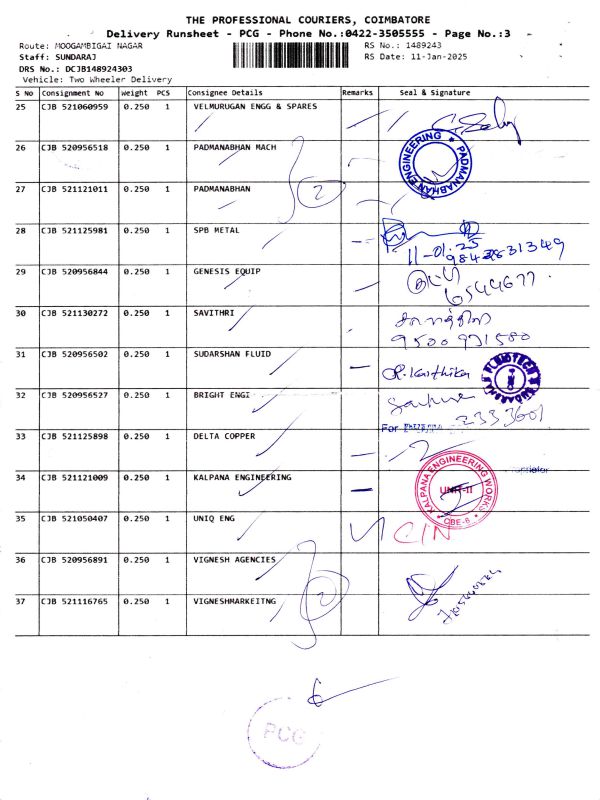 THE PROFESSIONAL COURIERS, COIMBATORE
Delivery Runsheet - PCG - Phone No.:0422-3505555 - Page No.:3
Route: MOOGAMBIGAI NAGAR
RS No.: 1489243
Staff: SUNDARAJ
RS Date: 11-Jan-2025
DRS No.: DCJB148924303
Vehicle: Two Wheeler Delivery
S No Consignment No Weight PCS Consignee Details Remarks Seal & Signature
25 CJB 521060959 0.250 1 VELMURUGAN ENGG & SPARES
26 CJB 520956518 0.250 1 PADMANABHAN MACH
PADMANABHAN ENGINEERING
27 CJB 521121011 0.250 1 PADMANABHAN
2
28 CJB 521125981 0.250 1 SPB METAL
11-01.25
29 CJB 520956844 0.250 1 GENESIS EQUIP
6544677
30 CJB 521130272 0.250 1 SAVITHRI
9500 931580
31 CJB 520956502 0.250 1 SUDARSHAN FLUID
P. Karthika
32 CJB 520956527 0.250 1 BRIGHT ENGI
2333601
For
33 CJB 521125898 0.250 1 DELTA COPPER
34 CJB 521121009 0.250 1 KALPANA ENGINEERING
KALPANA ENGINEERING WORKS
UNIT-II
CBE-6
35 CJB 521050407 0.250 1 UNIQ ENG
CIN
36 CJB 520956891 0.250 1 VIGNESH AGENCIES
37 CJB 521116765 0.250 1 VIGNESHMARKEITNG
2
6
PCG